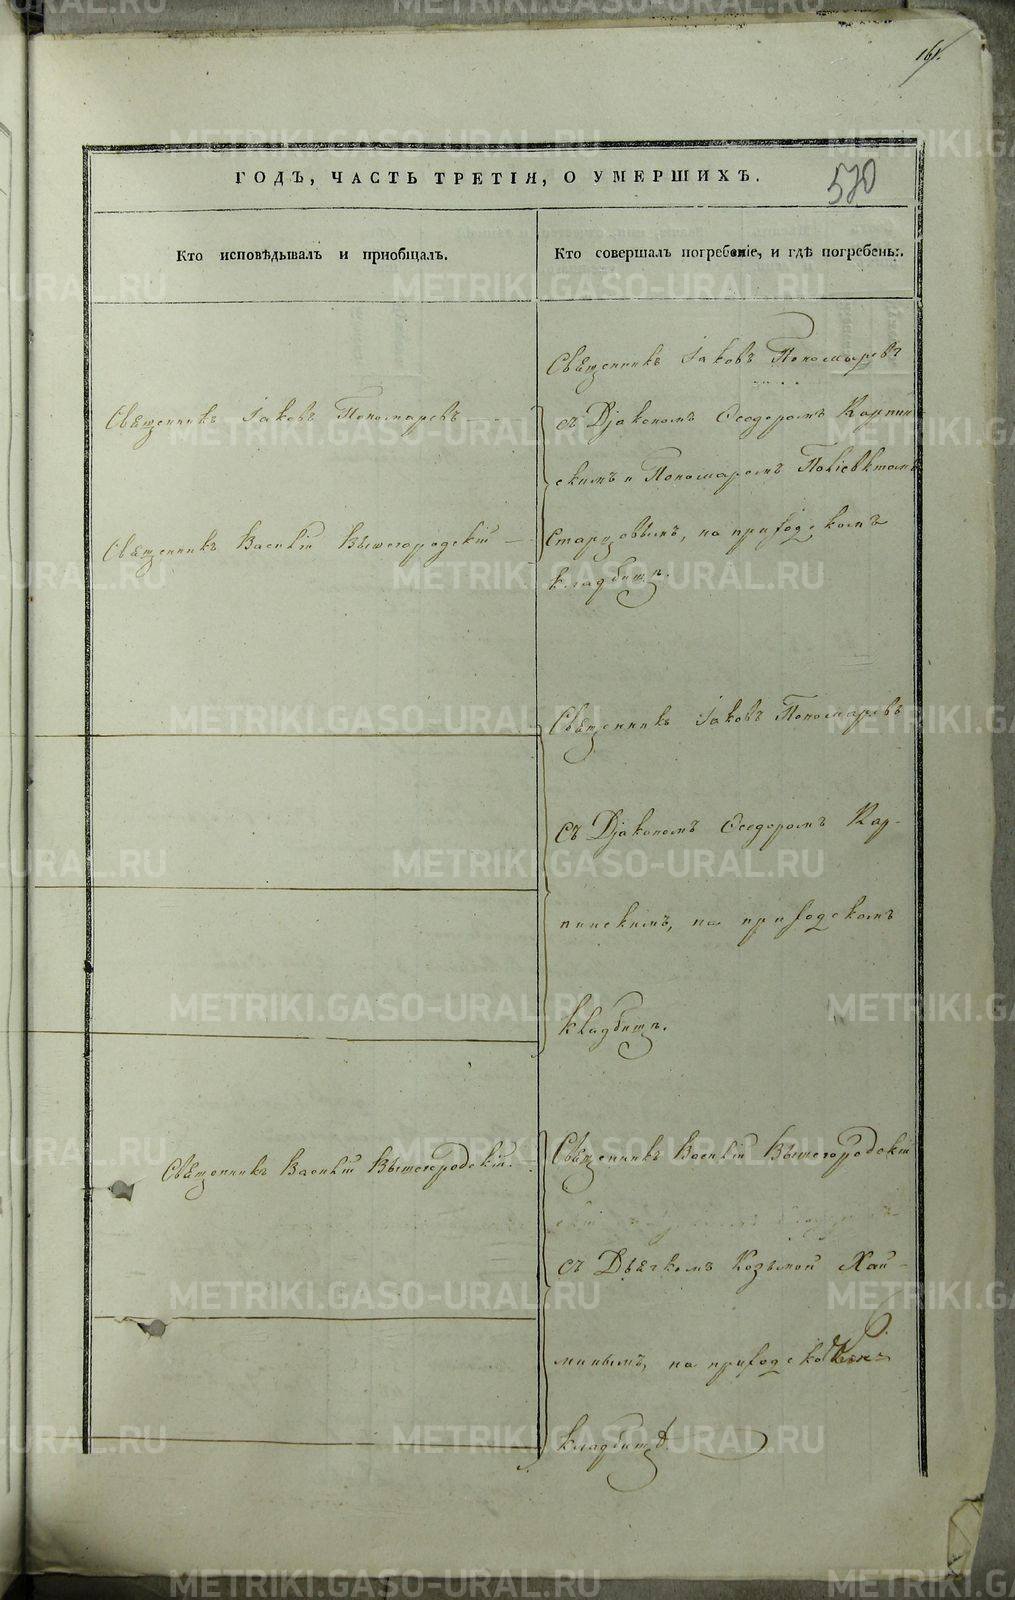 161.
ГОДЪ, ЧАСТЬ ТРЕТІЯ, О УМЕРШИХЪ.
570
Кто исповѣдывалъ и приобщалъ.
Кто совершалъ погребеніе, и гдѣ погребены.
Священникъ Іаковъ Пономаревъ
Священникъ Василій Вышегородскій
Священникъ Іаковъ Пономаревъ
съ Діакономъ Ѳеодоромъ Карпин-
скимъ и Пономаремъ Поліевктомъ
на приходскомъ
кладбищѣ.
Священникъ Іаковъ Пономаревъ
съ Діакономъ Ѳеодоромъ Кар-
пинскимъ, на приходскомъ
кладбищѣ.
Священникъ Василій Вышегородскій.
Священникъ Василій Вышегородскій
съ Дьячкомъ Козьмой Хай-
минымъ, на приходскомъ
кладбищѣ.
METRIKI.GASO-URAL.RU